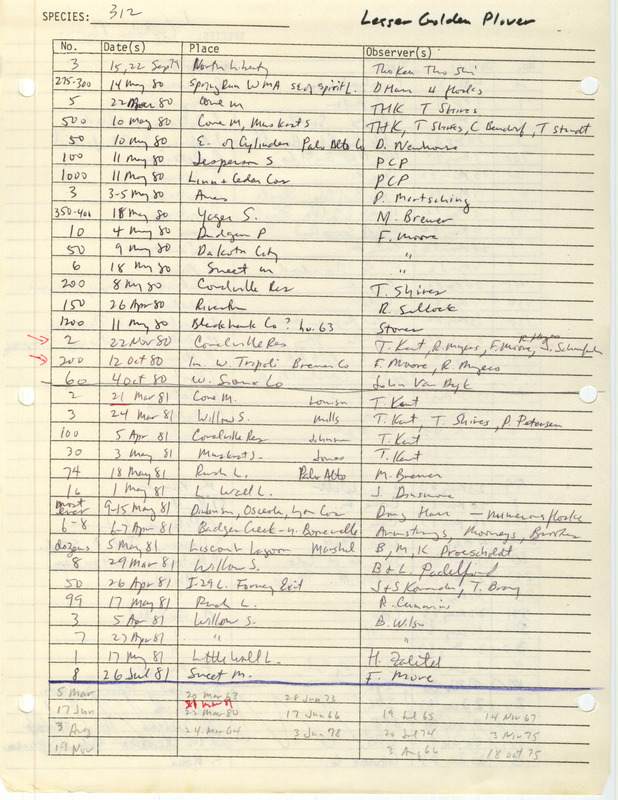 SPECIES: 312 Lesser Golden Plover
No. Date(s) Place Observer(s)
3 15,22 Sep 79 North Liberty
275-300 14 May 80 Spring Run WMA se of Spirit L. D Ham 4 flocks
5 22 Mar 80 Cone M THK T Shires
500 10 May 80 Cone M, Muskrat S THK, T Shires, C Bendorf, T Staudt
50 10 May 80 E. of Cylinder Palo Alto Co D. Newhouse
100 11 May 80 Jesperson S PCP
1000 11 May 80 Linn + Cedar Cos PCP
3 3-5 May 80 Ames P. Martsching
350-400 18 May 80 Yager S. M. Brewer
10 4 May 80 Dudgeon P F. Moore
50 9 May 80 Dakota City "
6 18 May 80 Sweet M "
200 8 May 80 Coralville Res T. Shires
150 26 Apr 80 Riverton R. Sillock
1200 11 May 80 Blackhawk Co ? hw. 63 Stover
2 22 Nov 80 Coralville Res T. Kent, R. Myers, F. Moore,
200 12 Oct 80 W. Tripoli Bremer Co F. Moore, R. Myers
60 4 Oct 80 W. Sioux Co John Van Dyk
2 21 Mar 81 Cone M. Louisa T. Kent
3 24 Mar 81 Willow S. Mills T. Kent, T. Shires, P. Petersen
100 5 Apr 81 Coralville Res Johnson T. Kent
30 3 May 81 Muskrat S. Jones T. Kent
74 18 May 81 Rush L. Palo Alto M. Brewer
16 1 May 81 L. Wall L. J. Dinsmore
most ever 9-15 May 81 Dickinson, Osceola, Lyon Cos Doug Harr - numerous flocks
6-8 6-7 Apr 81 Badger Creek - n. Booneville Armstrongs, Mooneys,
dozens 5 May 81 Liscomb Lagoon Marshal B, M, K Proescholdt
8 29 Mar 81 Willow S. B + L. Padelford
50 26 Apr 81 I-29 L. Forney Exit J + S T. Bray
99 17 May 81 Rush L. R. Cummins
3 5 Apr 81 Willow S. B. Wilson
7 27 Apr 81 " "
1 17 May 81 Little Wall L. H. Zaletel
8 26 Jul 81 Sweet M. F. Moore
5 Mar 20 Mar 63 28 Jun 73
21 Mar 81
17 Jun 22 Mar 80 17 Jun 66 19 Jul 65 14 Nov 67
3 Aug 24 Mar 64 3 Jun 78 20 Jul 74 3 Nov 75
19 Nov 3 Aug 66 18 Oct 75